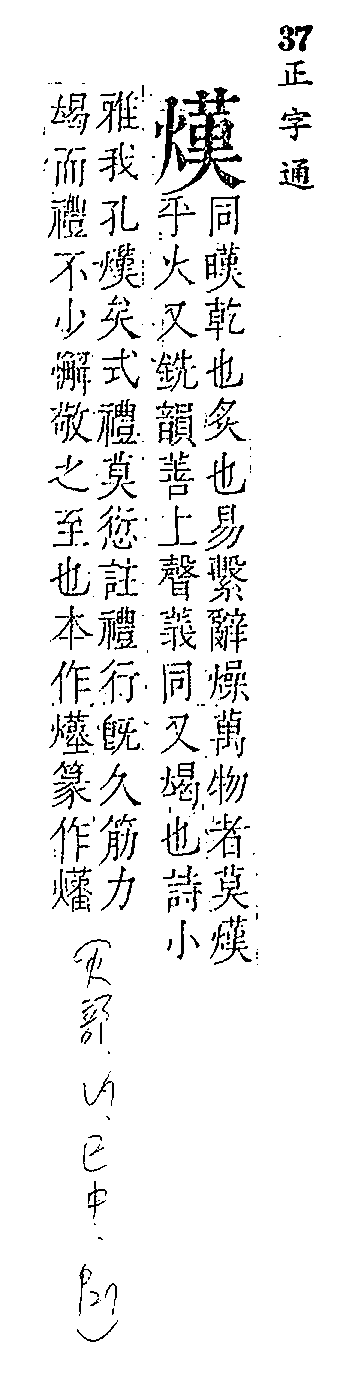 37 正字通
熯
同暵乾也炙也易繫辭燥萬物者莫熯
乎火又銑韻善上聲義同又竭也詩小
雅我孔熯矣式禮莫愆註禮行旣久筋力
竭而禮不少懈敬之至也本作篆作
火部.巳中.